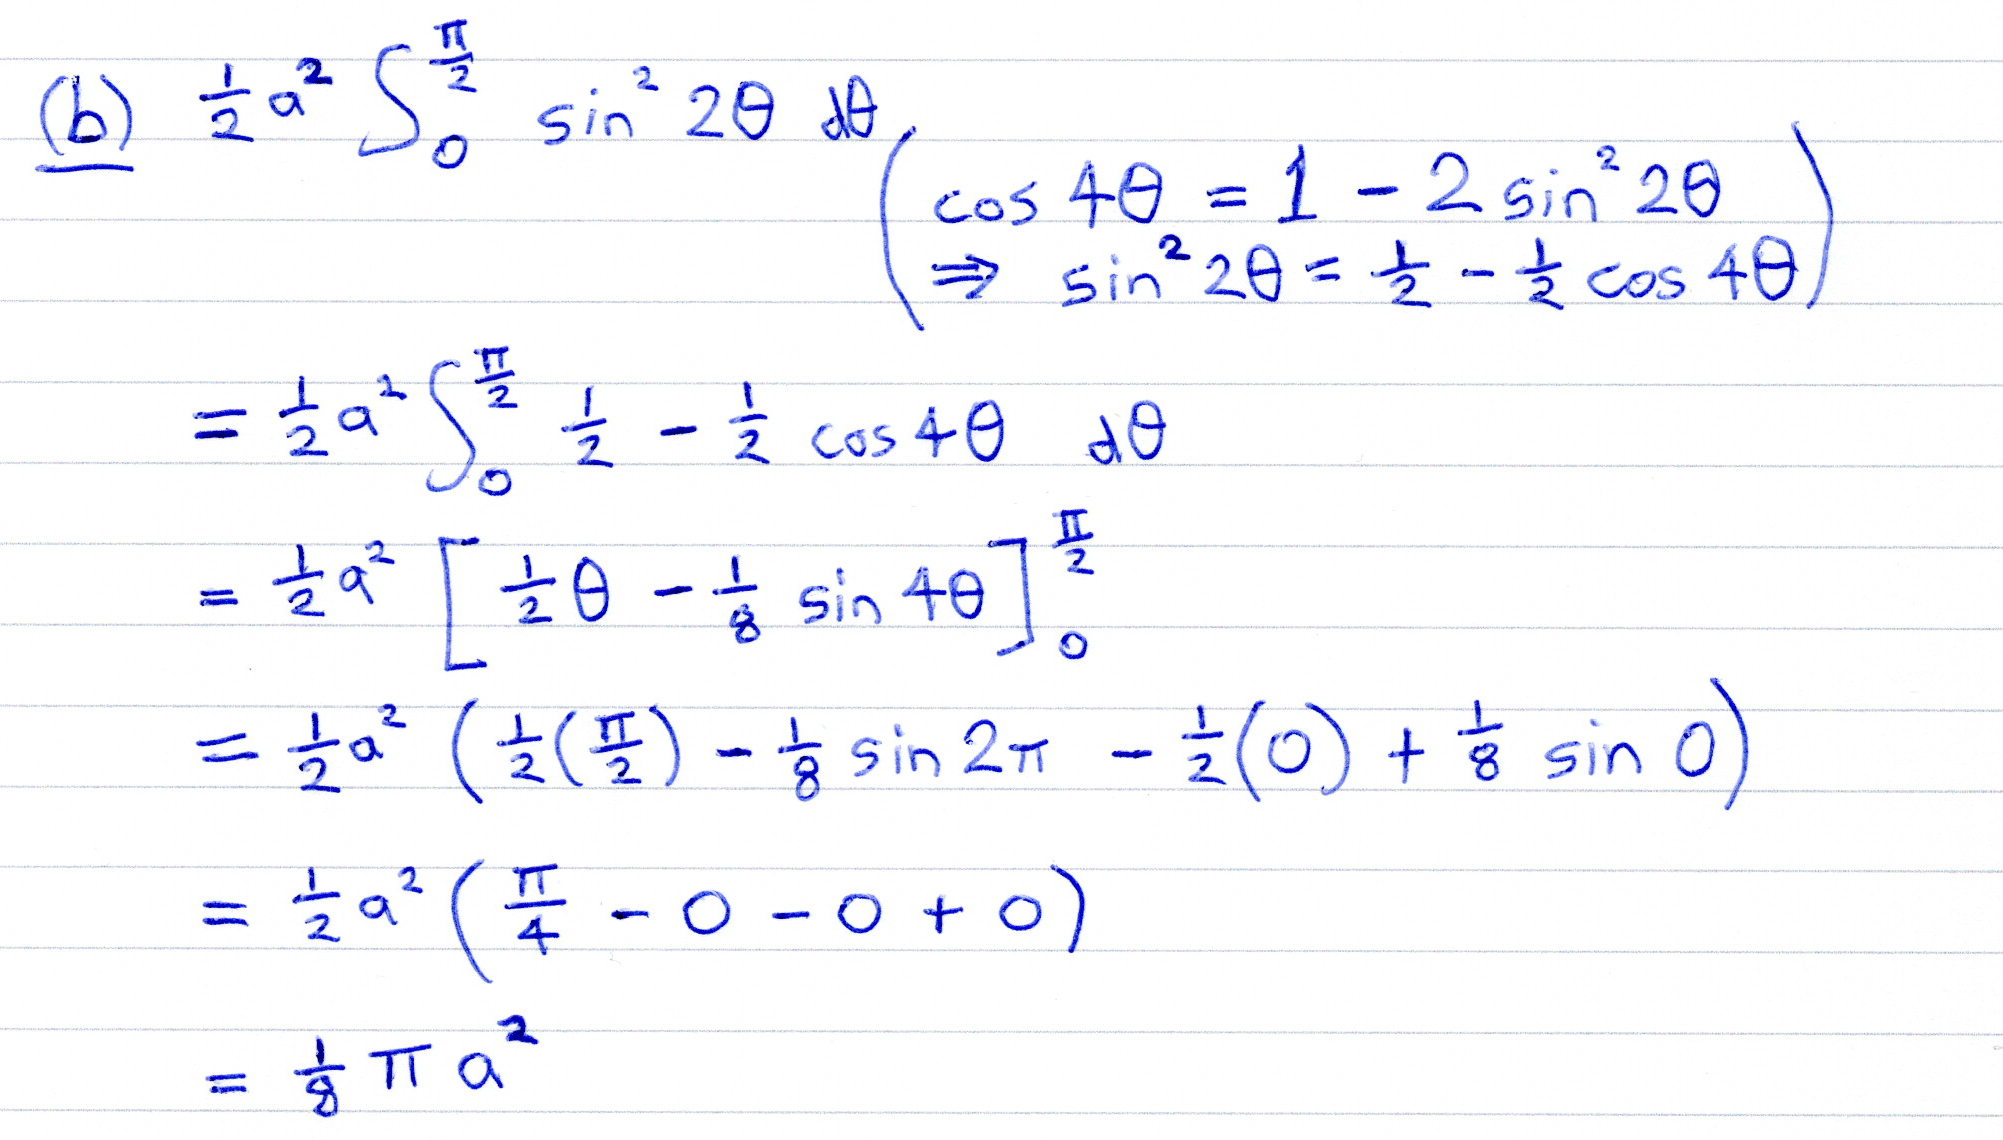 (b) ½a² ∫₀^(π/2) sin² 2θ dθ
(cos 4θ = 1 − 2 sin² 2θ
⇒ sin² 2θ = ½ − ½ cos 4θ)
= ½a² ∫₀^(π/2) ½ − ½ cos 4θ dθ
= ½a² [½θ − ⅛ sin 4θ]₀^(π/2)
= ½a² (½(π/2) − ⅛ sin 2π − ½(0) + ⅛ sin 0)
= ½a² (π/4 − 0 − 0 + 0)
= ⅛ π a²